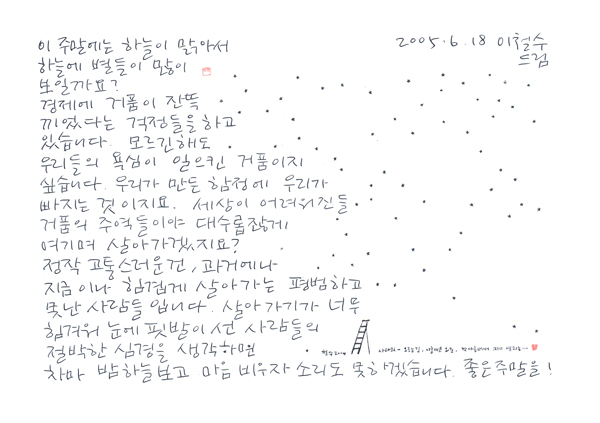 2005.6.18 이철수
드림
이 주말에는 하늘이 맑아서
하늘에 별들이 많이
보일까요?
경제에 거품이 잔뜩
끼었다는 걱정들을 하고
있습니다. 모르긴해도
우리들의 욕심이 일으킨 거품이지
싶습니다. 우리가 만든 함정에 우리가
빠지는 것이지요. 세상이 어려워진들
거품의 주역들이야 대수롭잖게
여기며 살아가겠지요?
정작 고통스러운건, 과거에나
지금이나 힘겹게 살아가는 평범하고
못난 사람들입니다. 살아가기가 너무
힘겨워 눈에 핏발이 선 사람들의
절박한 심경을 생각하면
차마 밤하늘보고 마음 비우자 소리도 못하겠습니다. 좋은주말을!